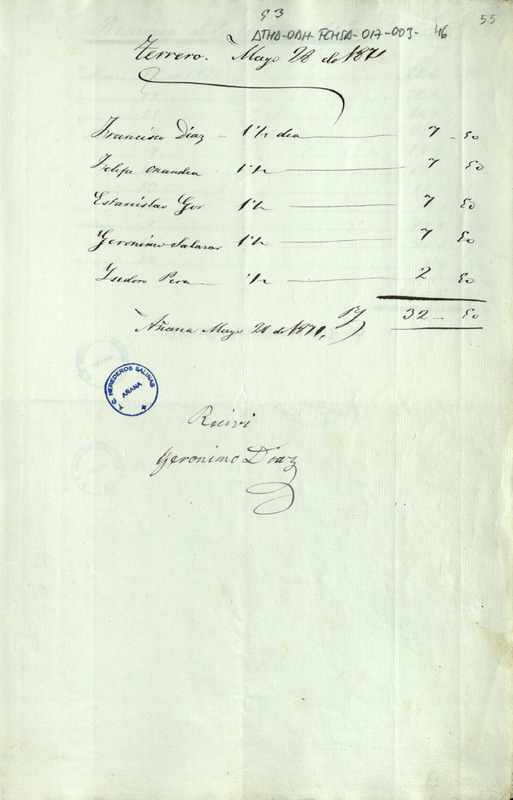 93
55
ATHA-DAH-FCHSA-017-003-46
Terrero. Mayo 28 de 1871
Francisco Díaz - 1 1/2 dia 7 - 50
Felipe 1 1/2 7 50
Estanislao Gor 1 1/2 7 50
Geronimo Salazar 1 1/2 7 50
Isidoro Pera 1/2 2 50
32 - 50
Añana Mayo 28 de 1871,
A.C. HEREDEROS SALINAS
AÑANA
Recivi
Geronimo Diaz